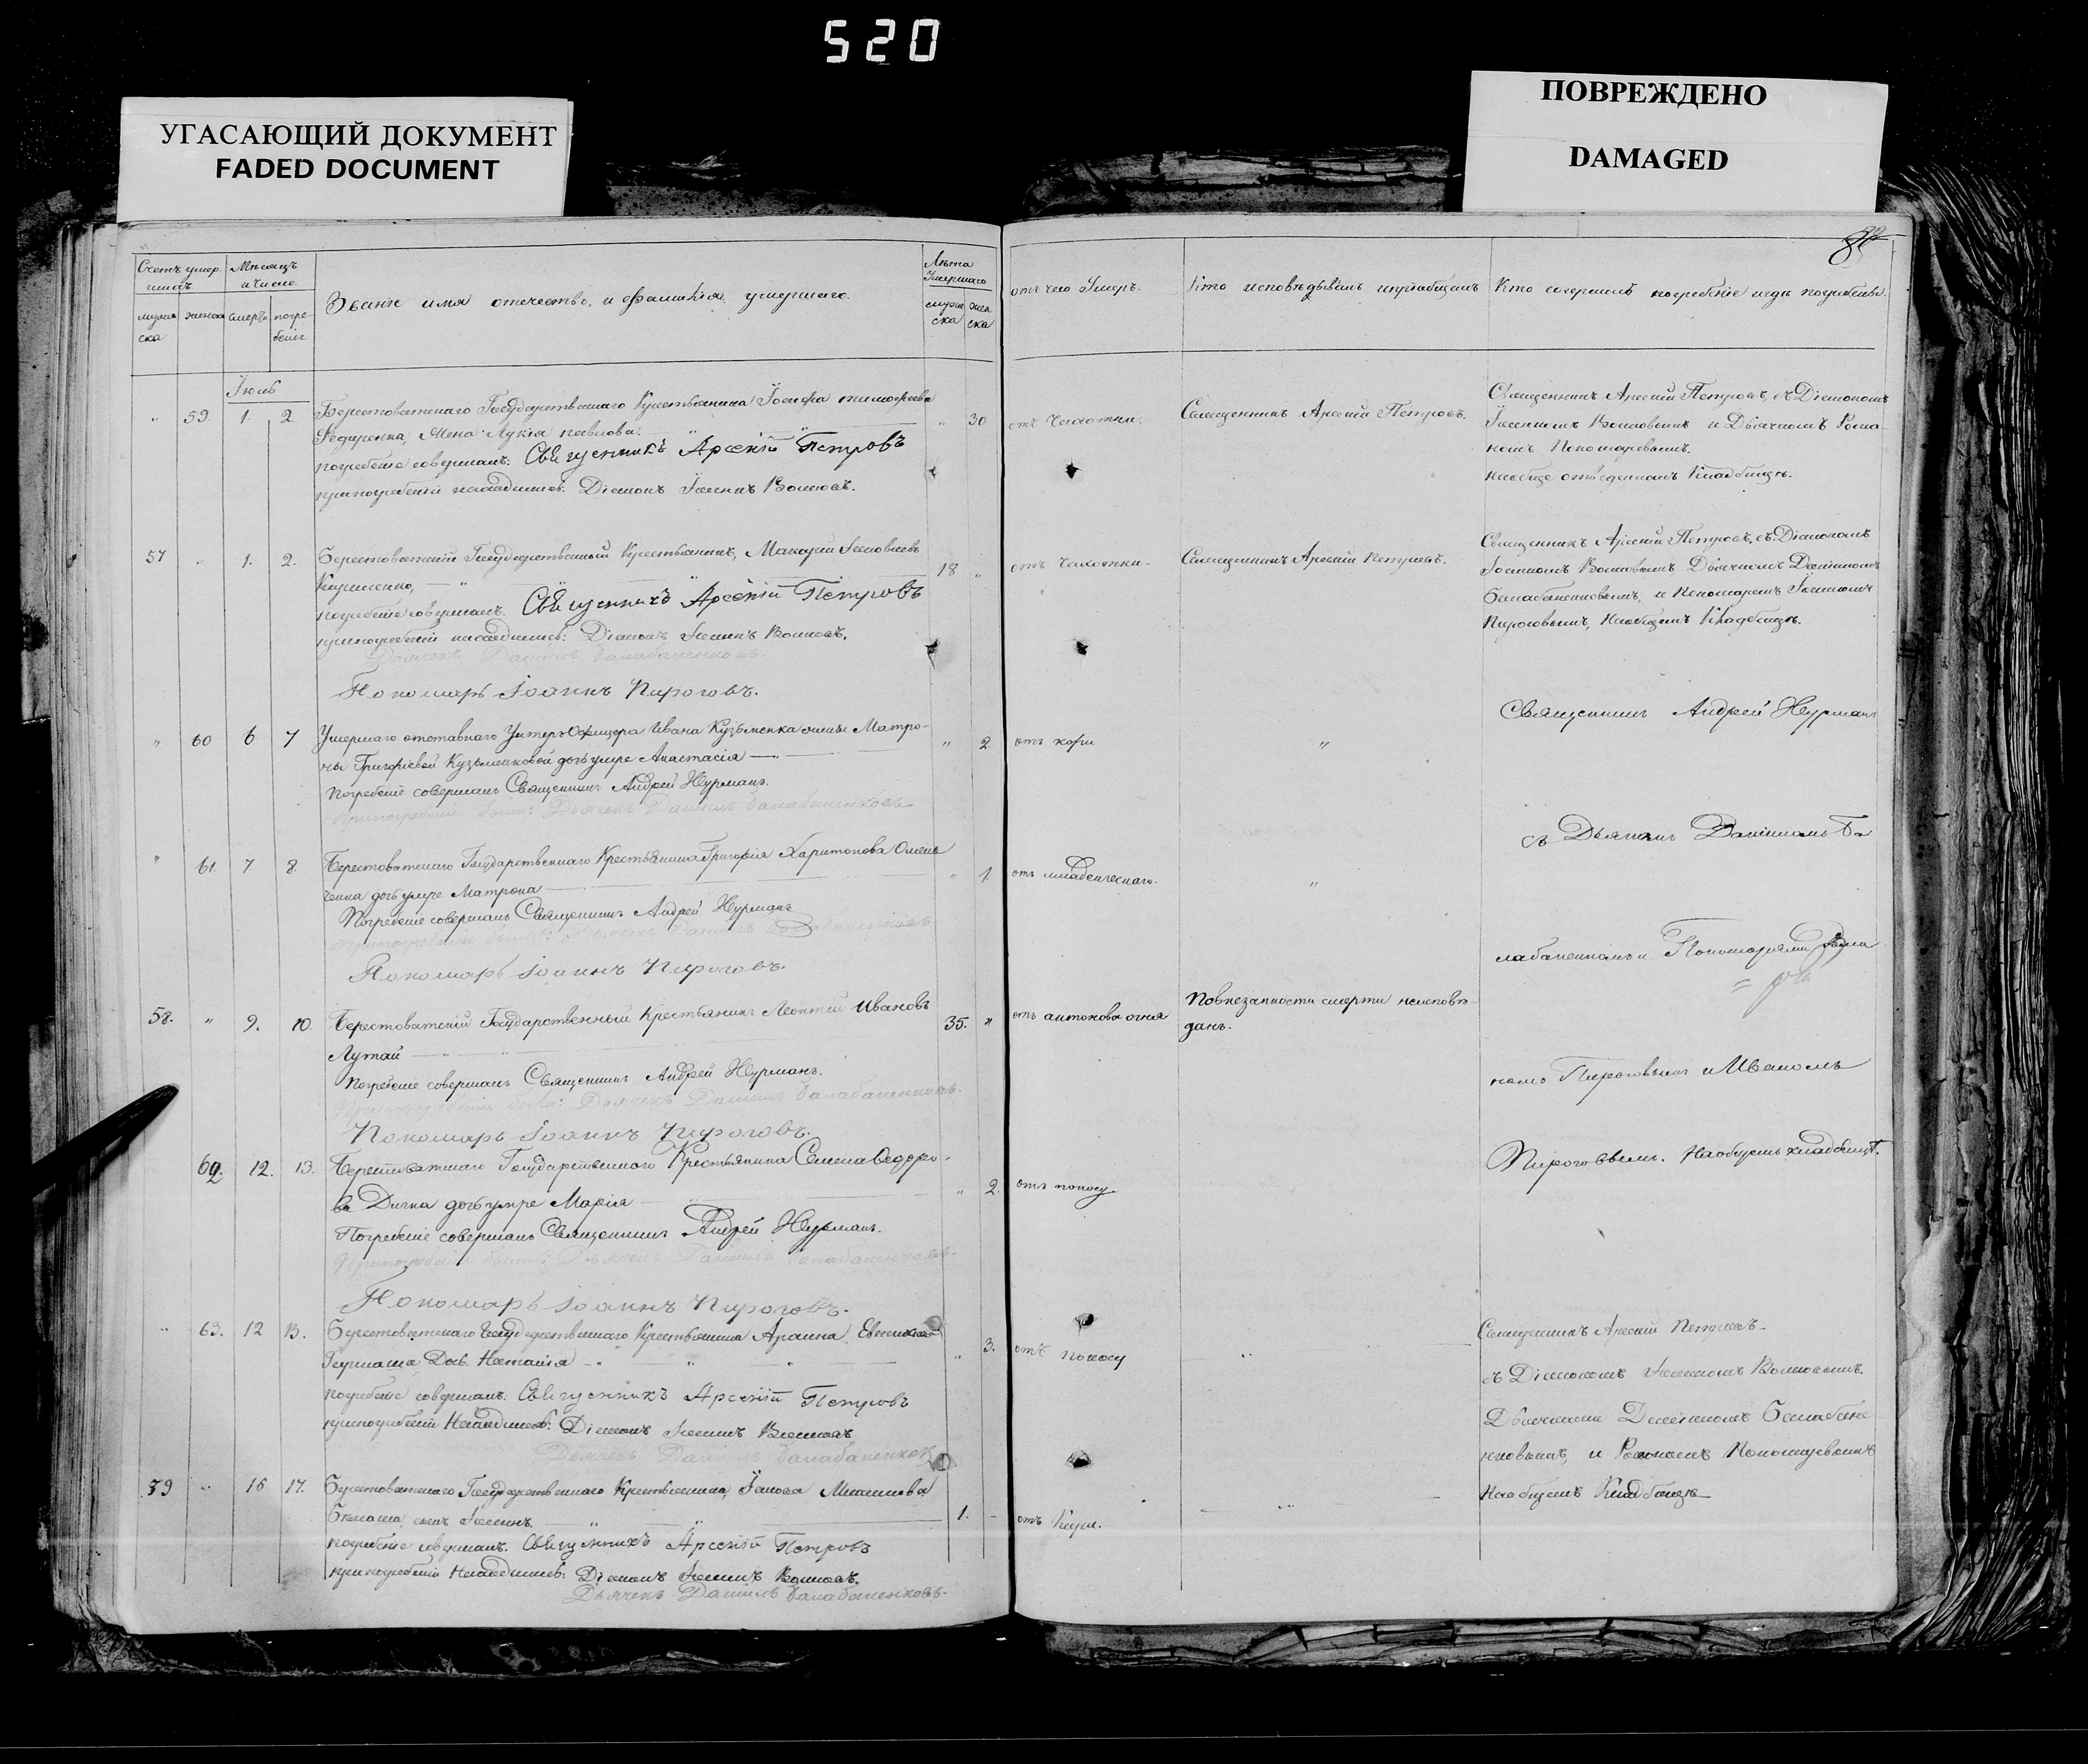 520
УГАСАЮЩИЙ ДОКУМЕНТ
FADED DOCUMENT
ПОВРЕЖДЕНО
DAMAGED
Счетъ умер
шихъ
Мѣсяцъ
и число
Званіе имя отечество, и фамилія умершаго.
Лѣта
Умершаго
отъ чего Умеръ.
Кто исповѣдывалъ и пріобщалъ
Кто совершалъ погребеніе и гдѣ погребены.
мужеска
женска
смерть
погребенія
мужеска
женска
Іюль
" 59. 1. 2.
Берестоватскаго Государственнаго Крестьянина Іосифа Тимофеева
Федиренка, Жена Лукія Павлова.
" 30
отъ Чахотки.
Священникъ Арсеній Петровъ.
погребеніе совершалъ: Священникъ Арсеній Петровъ
при погребеніи находились: Діаконъ Іоаннъ Волковъ.
Священникъ Арсеній Петровъ, съ Діакономъ
Іоанномъ Волковымъ и Дьячкомъ Рома
номъ Пономаревымъ.
Кладбищѣ.
57 " 1. 2.
Берестоватскій Государственный Крестьянинъ, Макарій Іаковлевъ
Кириленко,
18 "
отъ Чахотки.
Священникъ Арсеній Петровъ.
погребеніе совершалъ. Священникъ Арсеній Петровъ
при погребеніи находились: Діаконъ Іоаннъ Волковъ,
Дьячекъ Даніилъ Балабаненковъ.
Пономарь Іоаннъ Пироговъ.
Священникъ Арсеній Петровъ, съ Діакономъ
Іоанномъ Волковымъ Дьячкомъ Даніиломъ
Балабаненковымъ, и Пономаремъ Іоанномъ
Пироговымъ, На общемъ Кладбищѣ.
" 60 6 7
Умершаго отставнаго Унтеръ Офицера Ивана Кузьменка жены Матро-
ны Григорієвой Кузьменковой дочь умре Анастасія
" 2.
отъ кори
"
Погребеніе совершалъ Священникъ Андрей Нурманъ.
При погребеніи были: Дьячекъ Даніилъ Балабаненковъ
Священникъ Андрей Нурманъ
съ Дьякомъ Даніиломъ Ба
" 61. 7 8.
Берестоватскаго Государственнаго Крестьянина Григорія Харитонова Омель
ченка дочь умре Матрона
" 1.
отъ младенческаго.
"
Погребеніе совершалъ Священникъ Андрей Нурманъ
При погребеніи были: Дьячекъ Даніилъ Балабаненковъ
Пономарь Іоаннъ Пироговъ.
лабаненкомъ и Пономарями Рома
58. " 9. 10.
Берестоватскій Государственный Крестьянинъ Леонтій Ивановъ
Лутай
35. "
отъ антонова огня
По внезапности смерти неисповѣ-
данъ.
Погребеніе совершалъ Священникъ Андрей Нурманъ.
При погребеніи были: Дьячекъ Даніилъ Балабаненковъ.
Пономарь Іоаннъ Пироговъ.
номъ Пироговымъ и Иваномъ
62. 12. 13.
Берестоватскаго Государственнаго Крестьянина Семена Федоро-
ва Дична дочь умре Марія
" 2.
отъ поносу.
Погребеніе совершалъ Священникъ Андрей Нурманъ.
При погребеніи были: Дьячекъ Даніилъ Балабаненковъ.
Пономарь Іоаннъ Пироговъ.
Пироговымъ. На общемъ кладбищѣ.
" 63. 12 13.
Берестоватскаго Государственнаго Крестьянина
Дочь Наталія
" 3.
отъ поносу
"
погребеніе совершалъ: Священникъ Арсеній Петровъ
при погребеніи Находились: Діаконъ Іоаннъ Волковъ
Дьячекъ Даніилъ Балабаненков
Священникъ Арсеній Петровъ
съ Діакономъ Іоанномъ Волковымъ.
Дьячками Даніиломъ Балабане
нковымъ, и Романомъ Пономаревымъ
На общемъ Кладбищѣ
59 " 16 17.
Берестоватскаго Государственнаго Крестьянина,
сынъ Іоаннъ.
1. -
отъ Кори.
"
погребеніе совершалъ. Священникъ Арсеній Петровъ
при погребеніи Находились: Діаконъ Іоаннъ Волковъ.
Дьячекъ Даніилъ Балабаненковъ.